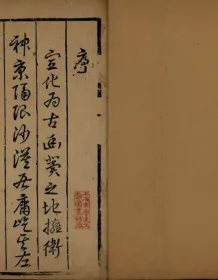 序
宣化為古幽冀之地擁衛
神京隔限沙漠居庸屹其左